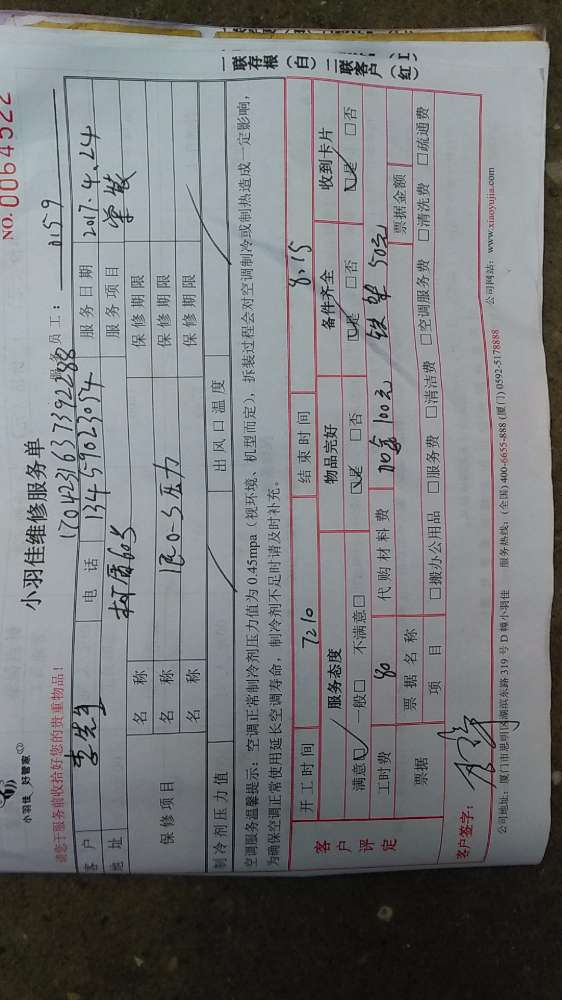 小羽佳 好管家
小羽佳维修服务单
NO. 0064522
请您于服务前收拾好您的贵重物品!
170423163739228B
服务员工: 0159
客户 李先生 电话 13459023054 服务日期 2017.4.24
地址 605 服务项目
保修项目 名称 保修期限
名称 压力 保修期限
名称 保修期限
制冷剂压力值 出风口温度
空调服务温馨提示:空调正常制冷剂压力值为0.45mpa(视环境、机型而定),拆装过程会对空调制冷或制热造成一定影响,
为确保空调正常使用延长空调寿命,制冷剂不足时请及时补充。
一联存根(白)二联客户(红)
客户评定
开工时间 7:10 结束时间 8:15
服务态度 物品完好 备件齐全 收到卡片
满意☑ 一般□ 不满意□ ☑是 □否 ☑是 □否 ☑是 □否
工时费 80 代购材料费 加氟100元 铁架50元
票据 票据名称 票据金额
项目 □搬办公用品 □服务费 □清洁费 □空调服务费 □清洗费 □疏通费
客户签字:
公司地址:厦门市思明区湖滨东路319号D幢小羽佳 服务热线:(全国)400-6655-888 (厦门)0592-5178888 公司网站:www.xiaoyujia.com